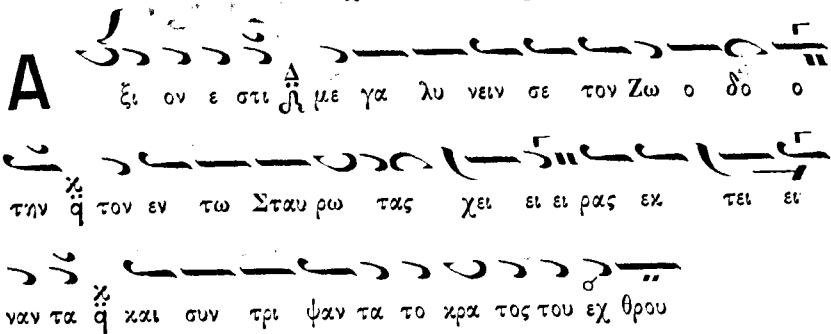 Α ξι ον ε στι Δ με γα λυ νειν σε τον Ζω ο δο ο
την ϗ q τον εν τω Σταυ ρω τας χει ει ει ρας εκ τει ει
ναν τα ϗ q και συν τρι ψαν τα το κρα τος του εχ θρου